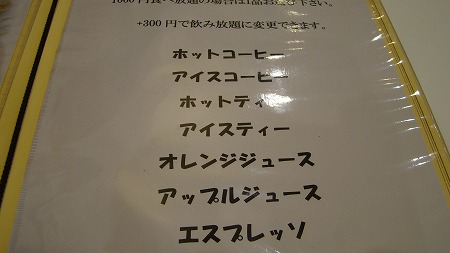 1000円食べ放題の場合は1品お選び下さい。
+300円で飲み放題に変更できます。
ホットコーヒー
アイスコーヒー
ホットティー
アイスティー
オレンジジュース
アップルジュース
エスプレッソ